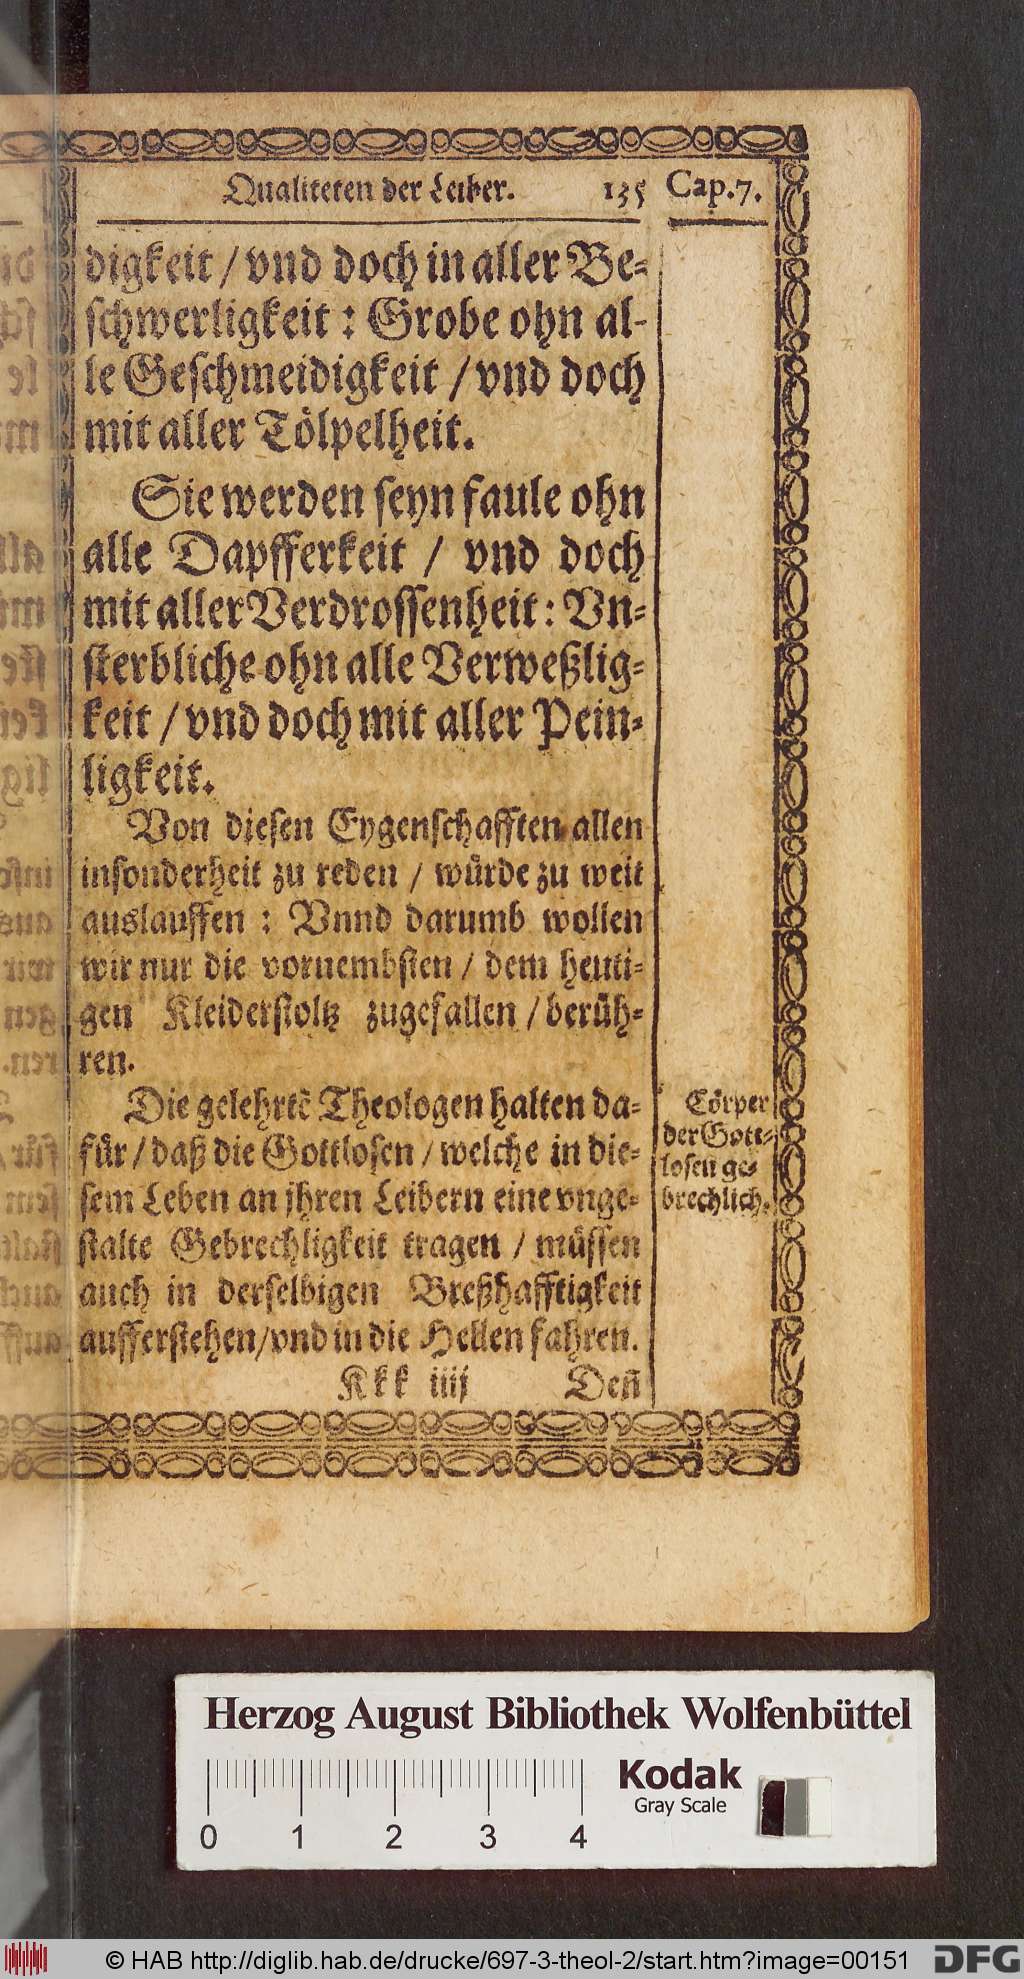 Qualiteten der Leiber. 135 Cap.7.
digkeit / vnd doch in aller Be-
schwerligkeit : Grobe ohn al-
le Geschmeidigkeit / vnd doch
mit aller Tölpelheit.
Sie werden seyn faule ohn
alle Dapfferkeit / vnd doch
mit aller Verdrossenheit : Vn-
sterbliche ohn alle Verweßlig-
keit / vnd doch mit aller Pein-
ligkeit.
Von diesen Eygenschafften allen
insonderheit zu reden / würde zu weit
auslauffen : Vnnd darumb wollen
wir nur die vornembsten / dem heuti-
gen Kleiderstoltz zugefallen / berüh-
ren.
Die gelehrtẽ Theologen halten da-
für / daß die Gottlosen / welche in die-
sem Leben an jhren Leibern eine vnge-
stalte Gebrechligkeit tragen / müssen
auch in derselbigen Breßhafftigkeit
aufferstehen/vnd in die Hellen fahren.
Cörper
der Gott-
losen ge-
brechlich.
Kkk iiij Deñ
Herzog August Bibliothek Wolfenbüttel
Kodak
Gray Scale
0 1 2 3 4
© HAB http://diglib.hab.de/drucke/697-3-theol-2/start.htm?image=00151
DFG